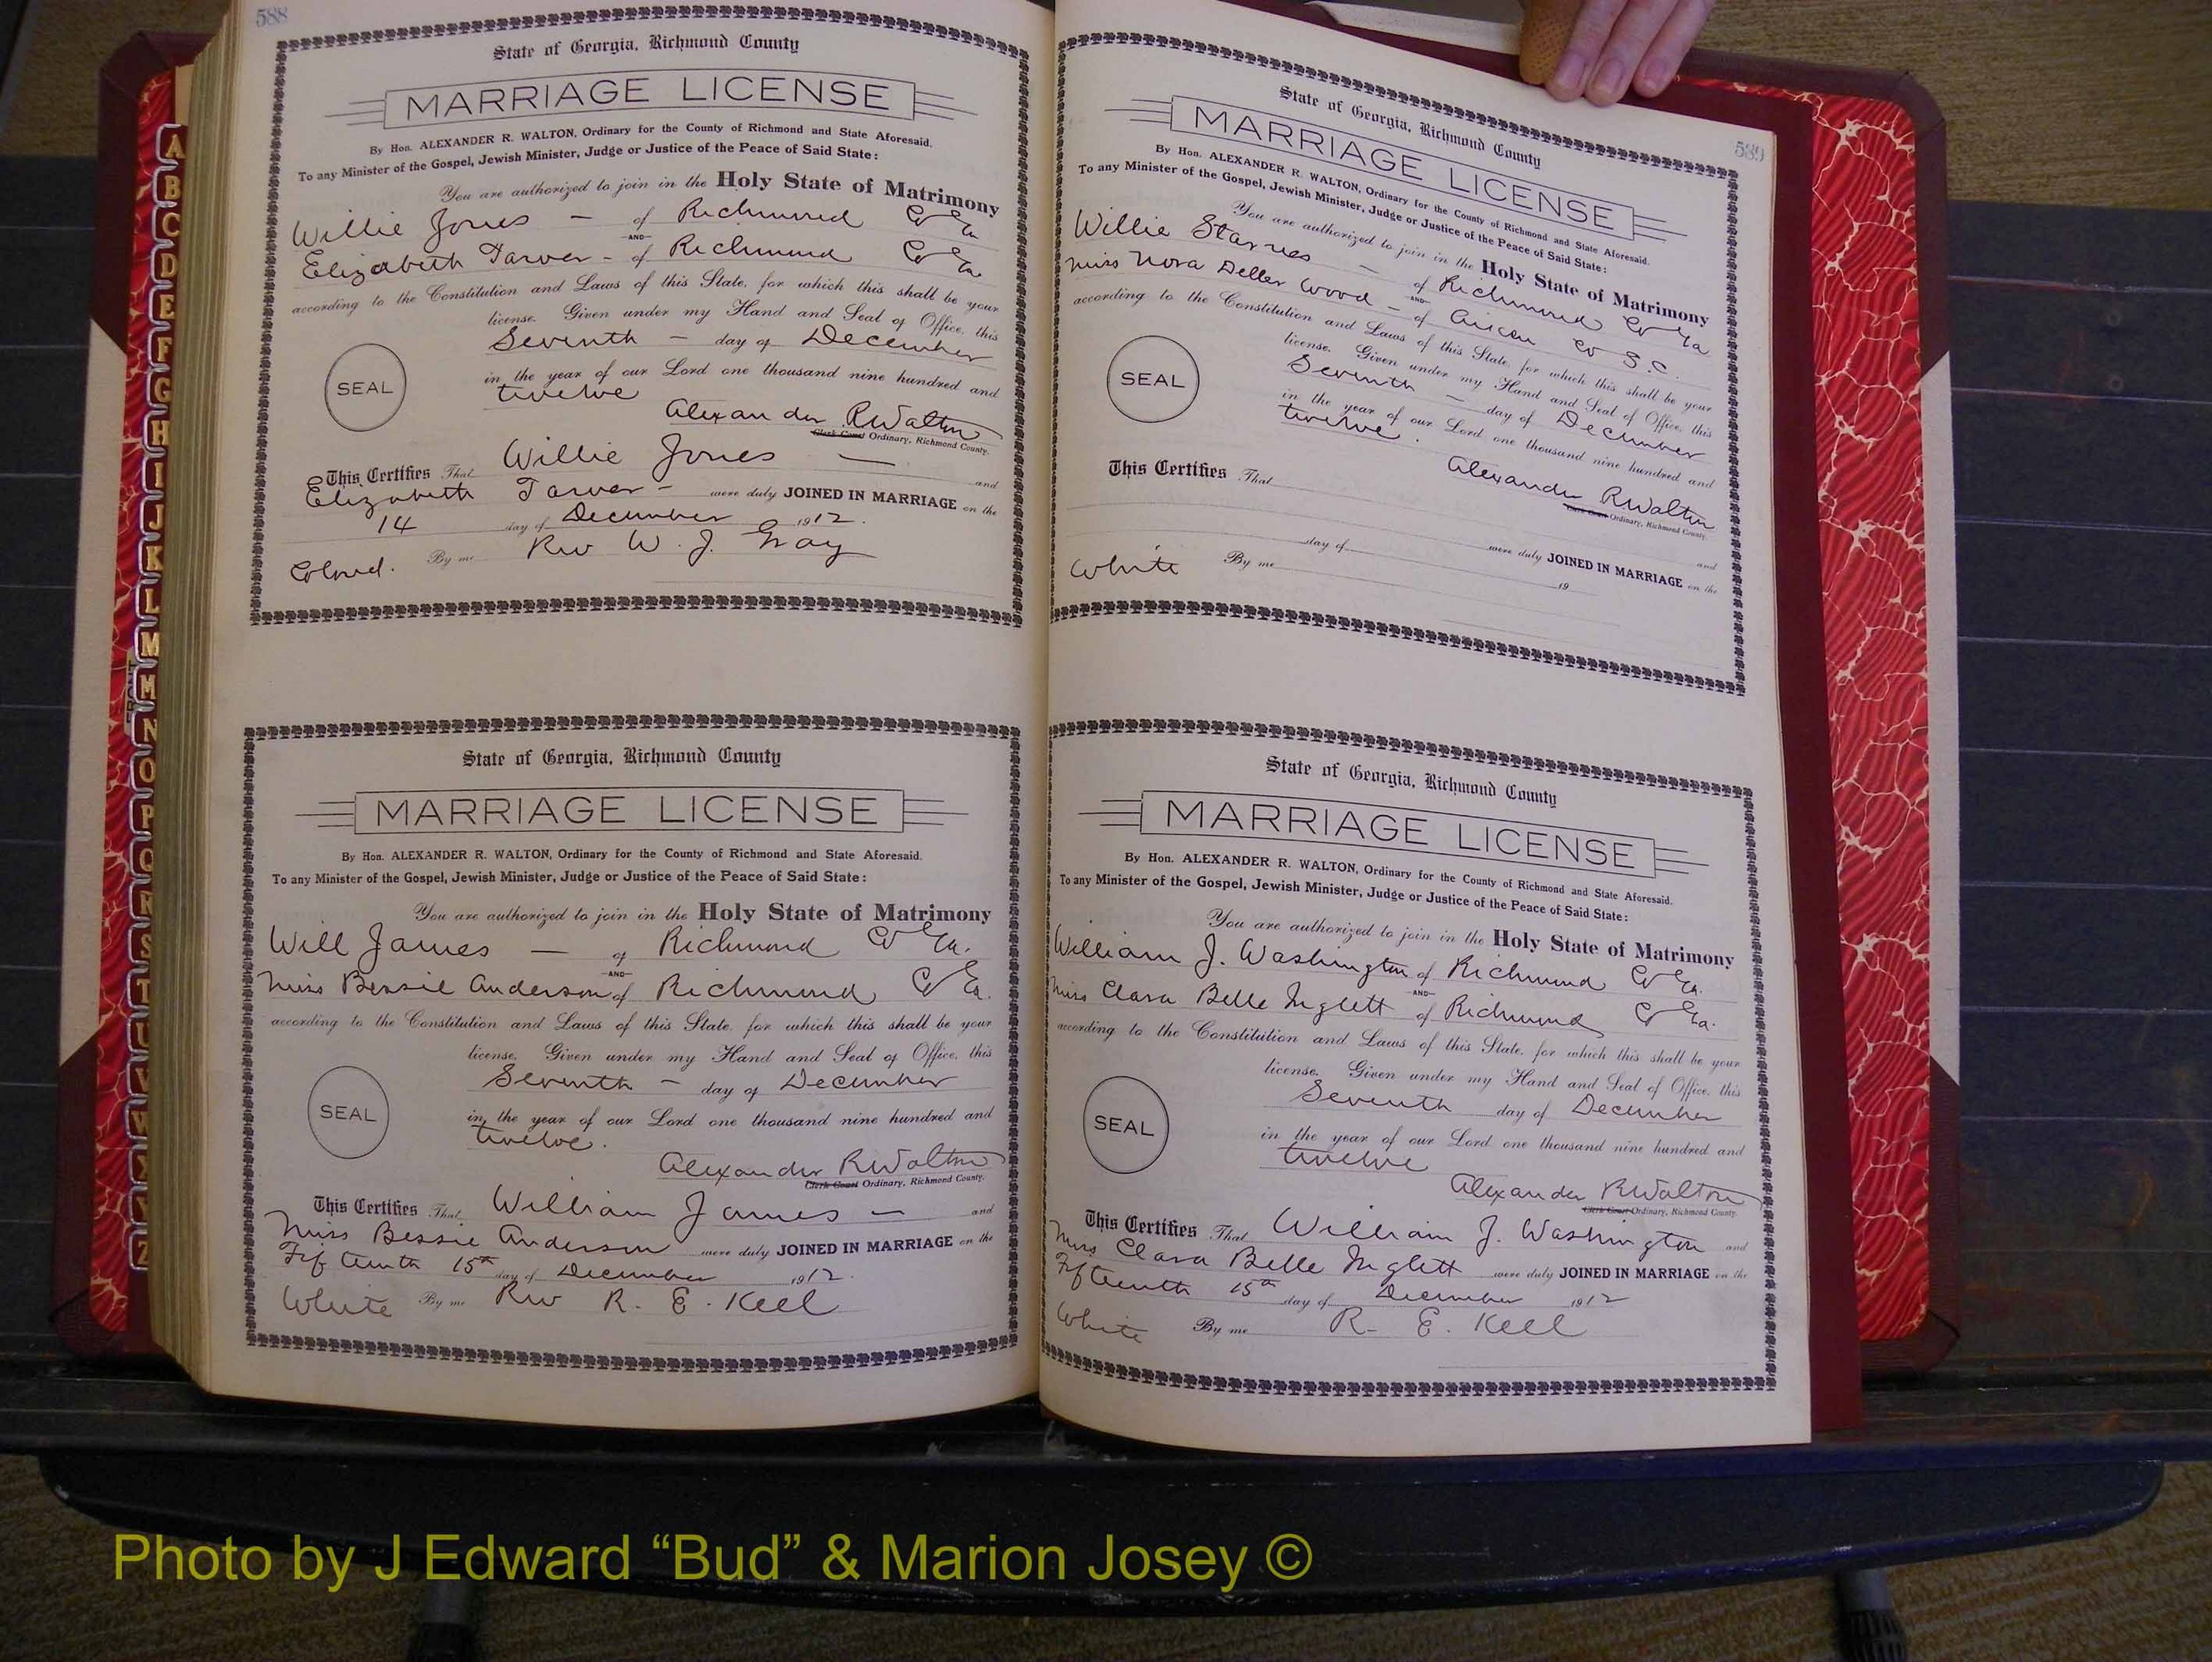 588
State of Georgia, Richmond County
MARRIAGE LICENSE
By Hon. ALEXANDER R. WALTON, Ordinary for the County of Richmond and State Aforesaid.
To any Minister of the Gospel, Jewish Minister, Judge or Justice of the Peace of Said State:
You are authorized to join in the Holy State of Matrimony
Willie Jones — of Richmond Co Ga
AND
Elizabeth Tarver - of Richmond Co Ga
according to the Constitution and Laws of this State, for which this shall be your
license. Given under my Hand and Seal of Office, this
Seventh — day of December
SEAL
in the year of our Lord one thousand nine hundred and
twelve
Alexander R Walton
Clerk Court Ordinary, Richmond County.
This Certifies That Willie Jones — and
Elizabeth Tarver - were duly JOINED IN MARRIAGE on the
14 day of December 1912.
Colored. By me Rev W. J. Gray
State of Georgia, Richmond County
MARRIAGE LICENSE
By Hon. ALEXANDER R. WALTON, Ordinary for the County of Richmond and State Aforesaid.
To any Minister of the Gospel, Jewish Minister, Judge or Justice of the Peace of Said State:
You are authorized to join in the Holy State of Matrimony
Will James — of Richmond Co Ga.
AND
Miss Bessie Anderson of Richmond Co Ga.
according to the Constitution and Laws of this State, for which this shall be your
license. Given under my Hand and Seal of Office, this
Seventh — day of December
SEAL
in the year of our Lord one thousand nine hundred and
twelve.
Alexander R Walton
Clerk Court Ordinary, Richmond County.
This Certifies That William James — and
Miss Bessie Anderson were duly JOINED IN MARRIAGE on the
Fifteenth 15th day of December 1912.
White By me Rev R. E. Keel
589
State of Georgia, Richmond County
MARRIAGE LICENSE
By Hon. ALEXANDER R. WALTON, Ordinary for the County of Richmond and State Aforesaid.
To any Minister of the Gospel, Jewish Minister, Judge or Justice of the Peace of Said State:
You are authorized to join in the Holy State of Matrimony
Willie Starnes — of Richmond Co Ga
AND
Miss Nora Deller Wood — of Aiken Co S.C.
according to the Constitution and Laws of this State, for which this shall be your
license. Given under my Hand and Seal of Office, this
Seventh — day of December
SEAL
in the year of our Lord one thousand nine hundred and
twelve.
Alexander R Walton
Clerk Court Ordinary, Richmond County.
This Certifies That
and
were duly JOINED IN MARRIAGE on the
day of 19
White By me
State of Georgia, Richmond County
MARRIAGE LICENSE
By Hon. ALEXANDER R. WALTON, Ordinary for the County of Richmond and State Aforesaid.
To any Minister of the Gospel, Jewish Minister, Judge or Justice of the Peace of Said State:
You are authorized to join in the Holy State of Matrimony
William J. Washington of Richmond Co Ga.
AND
Miss Clara Belle Inglett of Richmond Co Ga.
according to the Constitution and Laws of this State, for which this shall be your
license. Given under my Hand and Seal of Office, this
Seventh day of December
SEAL
in the year of our Lord one thousand nine hundred and
twelve
Alexander R Walton
Clerk Court Ordinary, Richmond County.
This Certifies That William J. Washington and
Miss Clara Belle Inglett were duly JOINED IN MARRIAGE on the
Fifteenth 15th day of December 1912
White By me R. E. Keel
A
B
C
D
E
F
G
H
I
J
K
L
M
M
N
O
P
Q
R
S
T
U
V
W
X
Y
Z
Photo by J Edward “Bud” & Marion Josey ©